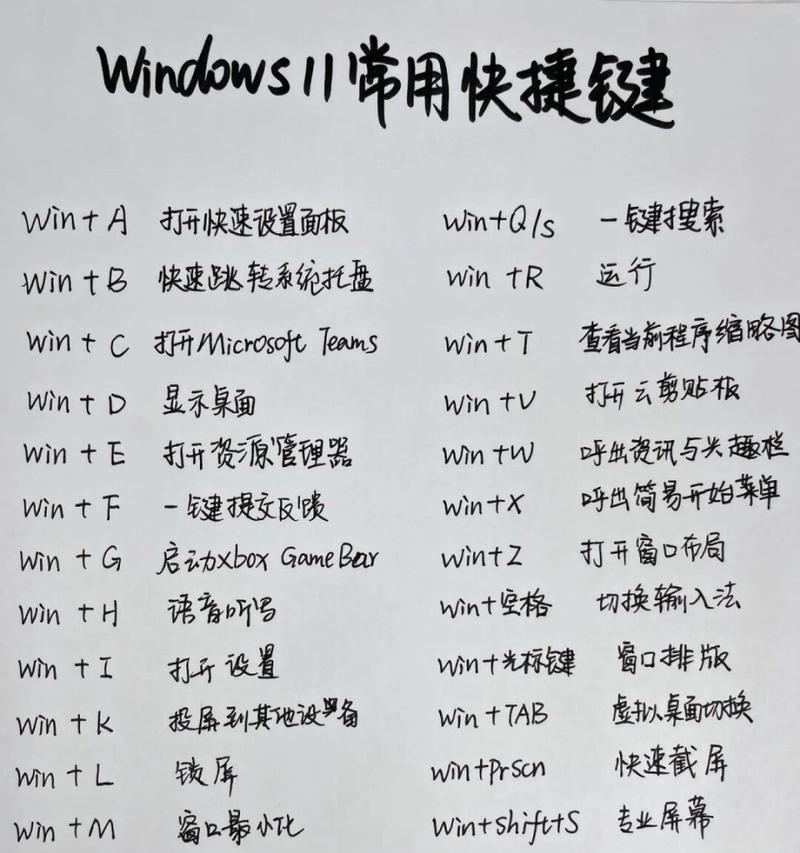 Windows 11 常用快捷键
Win + A 打开快速设置面板
Win + B 快速跳转系统托盘
Win + C 打开Microsoft Teams
Win + D 显示桌面
Win + E 打开资源管理器
Win + F 一键提交反馈
Win + G 启动xbox GameBar
Win + H 语音听写
Win + I 打开设置
Win + K 投屏到其他设备
Win + L 锁屏
Win + M 窗口最小化
Win+Q/s 一键搜索
Win +R 运行
Win+T 查看当前程序缩略图
Win+V 打开云剪贴板
Win+W 呼出资讯与兴趣栏
Win+X 呼出简易开始菜单
Win+Z 打开窗口布局
Win+空格 切换输入法
Win+光标键 窗口排版
Win+TAB 虚拟桌面切换
Win+prscn 快速截屏
Win+shift+S 专业屏幕